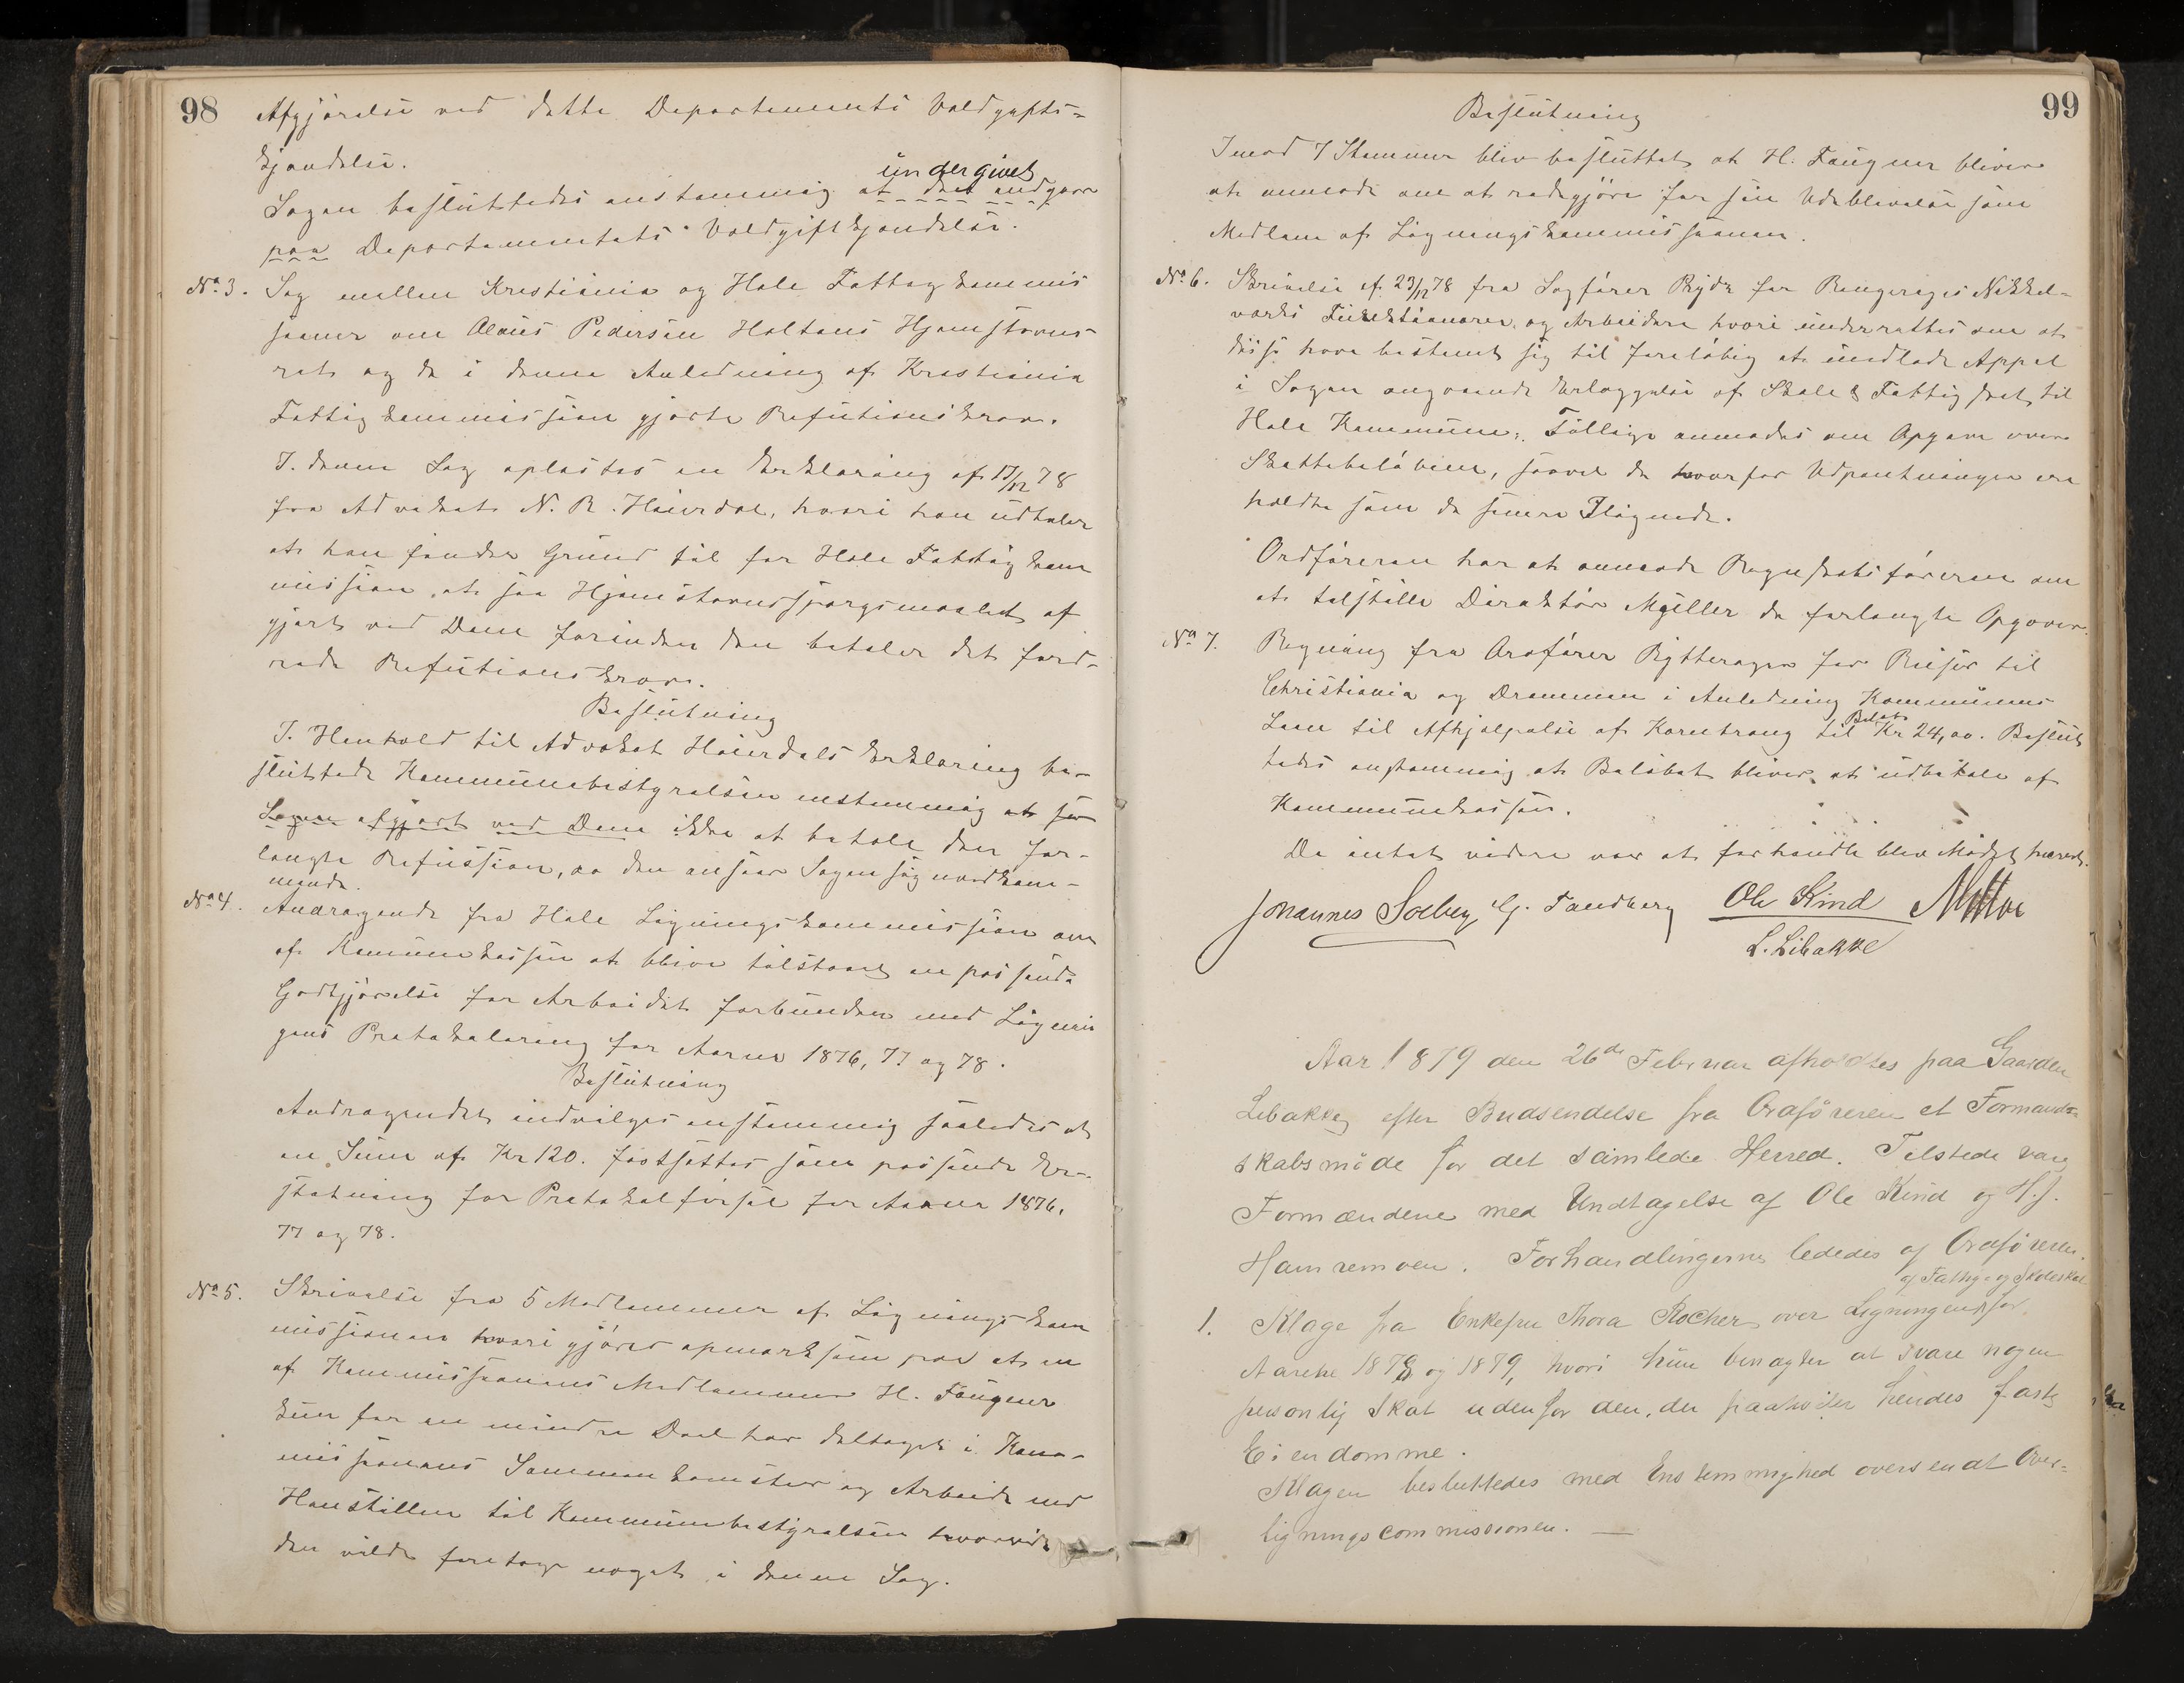 98
Afgjørelse ved dette Departements Voldgifts-
kjendelse.
Sagen besluttedes enstemmig at det undgives undergivet
paa Departementets Voldgiftkjendelse.
No 3. Sag mellem Kristiania og Hole Fattigkommis
sioner om Oleaus Pedersen Holtens Hjemstavns-
ret og de i denne Anledning af Kristiania
Fattigkommission gjorte Refutionskrav.
I denne Sag oplæstes en Erklæring af 17/12 78
fra Advokat N. R. Häerdal, hvori han udtaler
at han finder Grund til for Hole Fattigkom
mission at faa Hjemstavnsspørgsmaalet af
gjort ved Dom forinden den betaler det ford-
rede Refutionskrav.
Beslutning
I Henhold til Advokat Häerdals Erklæring be-
sluttede Kommunebestyrelsen enstemmig at faa
Sagen afgjort ved Dom ikke at betale den for-
langte Refusion, da den ansaar Sagen sig uvedkom-
mende.
No 4. Andragende fra Hole Ligningskommission om
af Kommunekassen at blive tilstaaet en passende
Godtgjørelse for Arbeidet forbunden med Lignin
gens Protokolering for Aarne 1876, 77 og 78.
Beslutning
Andragendet indvilges enstemmig saaledes at
en Sum af Kr 120. fastsættes som passende Er-
statning for Protokolførsel for Aarene 1876,
77 og 78.
No 5. Skrivelse fra 5 Medlemmer af Ligningskom
missionen hvori gjøres opmærksom paa at en
af Kommissionens Medlemmer H. Fougner
kun for en mindre Deel har deltaget i Kom-
missionens Sammenkomster og Arbeide med
Henstillen til Kommunebestyrelsen hvorvidt
den vilde foretage noget i denne Sag.
99
Beslutning
Imod 7 Stemmer blev besluttet at H. Fougner bliver
at anmode om at redegjøre for sin Udeblivelse som
Medlem af Ligningskommissionen.
No 6. Skrivelse af 23/12 78 fra Sagfører Bydr for Ringeriges Nikkel-
værks Funktionærer og Arbeidere hvori underrettes om at
disse have bestemt sig til foreløbig at undlade Appel
i Sagen angaaende Erlæggelse af Skole & Fattigskat til
Hole Kommune. Tillige anmodes om Opgave over
Skattebeløbene, saavel de hvorfor Udpantninger ere
holdte som de senere Iliggende.
Ordføreren har at anmode Regnskabsføreren om
at tilstille Direktør Møller de forlangte Opgaver.
No 7. Regning fra Ordfører Rytterager for Reiser til
Christiania og Drammen i Anledning Kommunens
Laan til Afhjælpelse af Korntrang til Beløb Kr 24,00. Beslut
tedes enstemmig at Beløbet bliver at udbetale af
Kommunekassen.
Da intet videre var at forhandle blev Mødet hævet.
Johannes Solberg G. Tandberg Ole Kind
L. Libakke
Aar 1879 den 26de Februar afholdtes paa Gaarden
Libakke efter Budsendelse fra Ordføreren et Formands-
skabsmöde for det samlede Herred. Tilstede vare
Formændene med Undtagelse af Ole Kind og H. J.
Hamremoen. Forhandlingerne lededes af Ordføreren.
1. Klage fra Enkefru Thora Rocher over Ligningen af Fattig- og Skoleskat for
Aarene 1878 og 1879, hvori hun benægter at svare nogen
personlig Skat udenfor den, der paahviler hendes faste
Eiendomme.
Klagen besluttedes med Enstemmighed oversendt Over-
ligningscommissionen. —